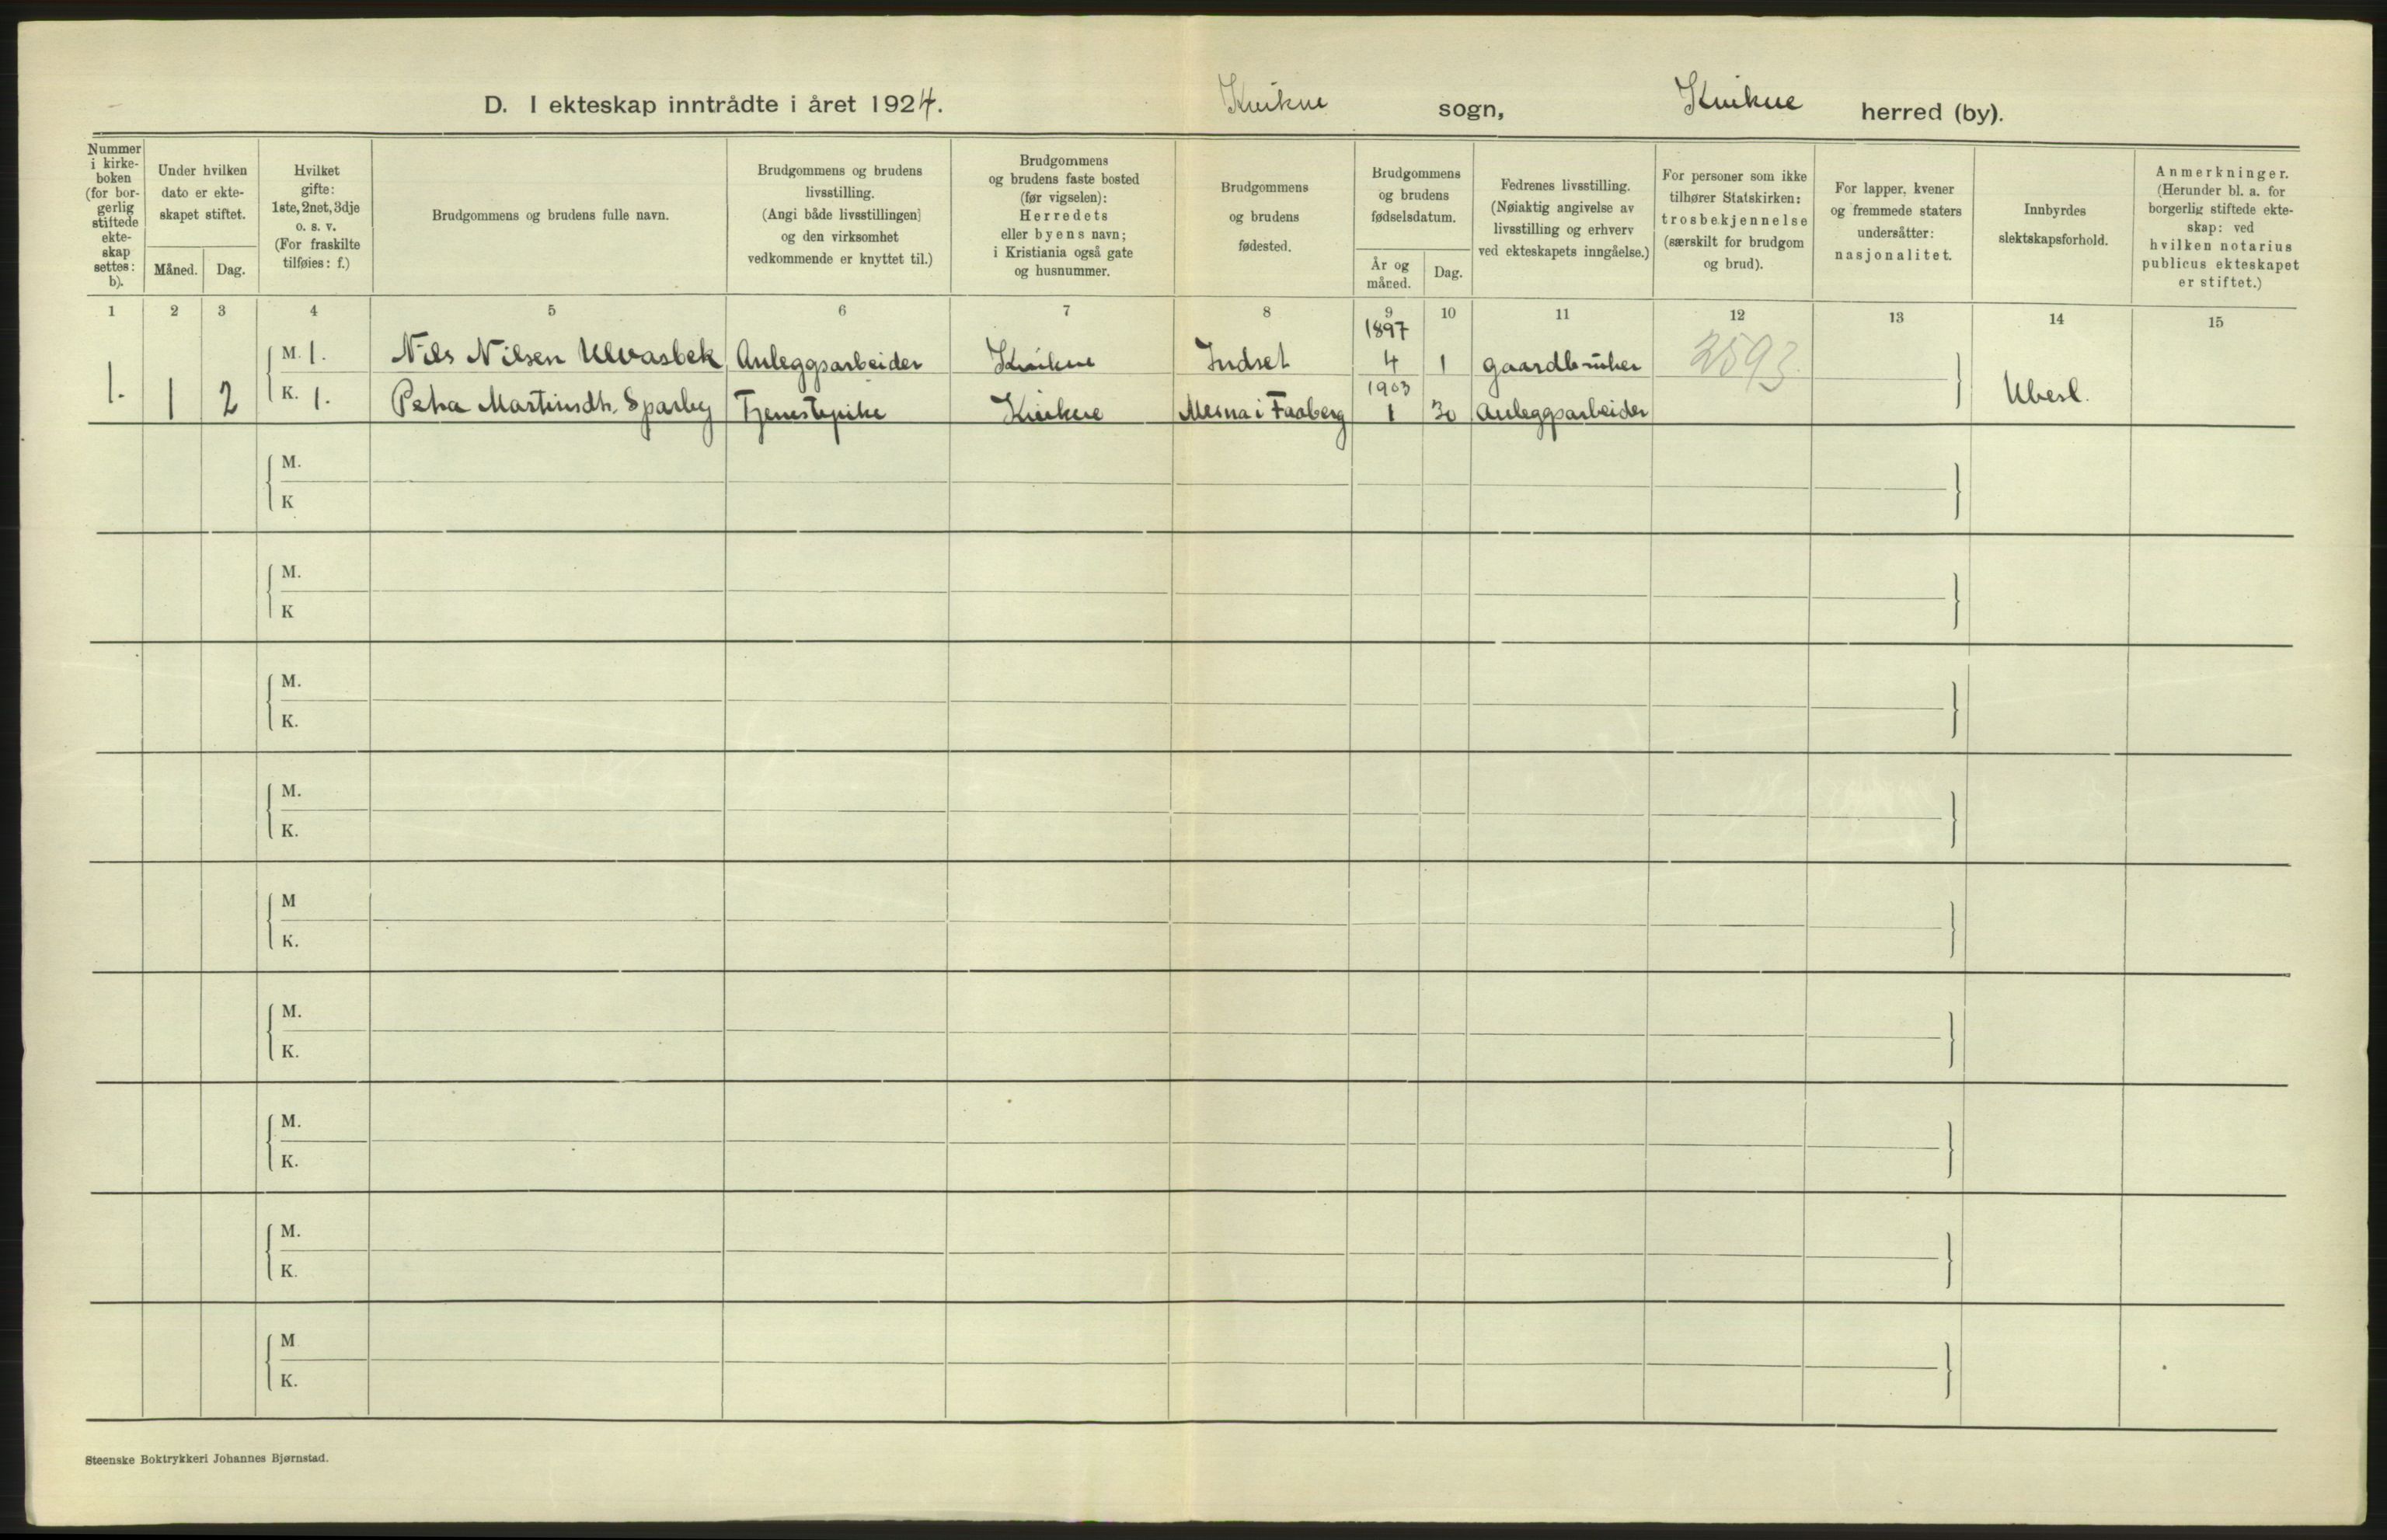 D. I ekteskap inntrådte i året 1924. Kvikne sogn, Kvikne herred (by).
Nummer
i kirke-
boken
(for bor-
gerlig
stiftede
ekte-
skap
settes:
b).
Under hvilken
dato er ekte-
skapet stiftet.
Måned. Dag.
Hvilket
gifte:
1ste, 2net, 3dje
o. s. v.
(For fraskilte
tilføies: f.)
Brudgommens og brudens fulle navn.
Brudgommens og brudens
livsstilling.
(Angi både livsstillingen
og den virksomhet
vedkommende er knyttet til.)
Brudgommens
og brudens faste bosted
(før vigselen):
Herredets
eller byens navn;
i Kristiania også gate
og husnummer.
Brudgommens
og brudens
fødested.
Brudgommens
og brudens
fødselsdatum.
År og
måned.
Dag.
Fedrenes livsstilling.
(Nøiaktig angivelse av
livsstilling og erhverv
ved ekteskapets inngåelse.)
For personer som ikke
tilhører Statskirken:
trosbekjennelse
(særskilt for brudgom
og brud).
For lapper, kvener
og fremmede staters
undersåtter:
nasjonalitet.
Innbyrdes
slektskapsforhold.
Anmerkninger.
(Herunder bl. a. for
borgerlig stiftede ekte-
skap: ved
hvilken notarius
publicus ekteskapet
er stiftet.)
1 2 3 4 5 6 7 8 9 10 11 12 13 14 15
1. 1 2
M. 1. Nils Nilsen Ulvasbek Anleggsarbeider Kvikne Indset 1897 4 1 gaardbruker 2593
K. 1. Petra Martinsdtr. Sparby Tjenestepike Kvikne Mesna i Faaberg 1903 1 30 Anleggsarbeider Ubesl.
M.
K
M.
K
M.
K.
M.
K.
M
K.
M.
K.
M.
K.
M.
K.
M
K.
Steenske Boktrykkeri Johannes Bjørnstad.